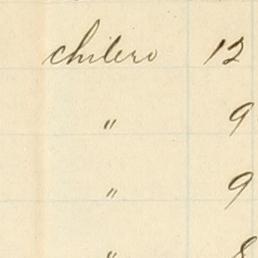 chilero 12
" 9
" 9
" 8